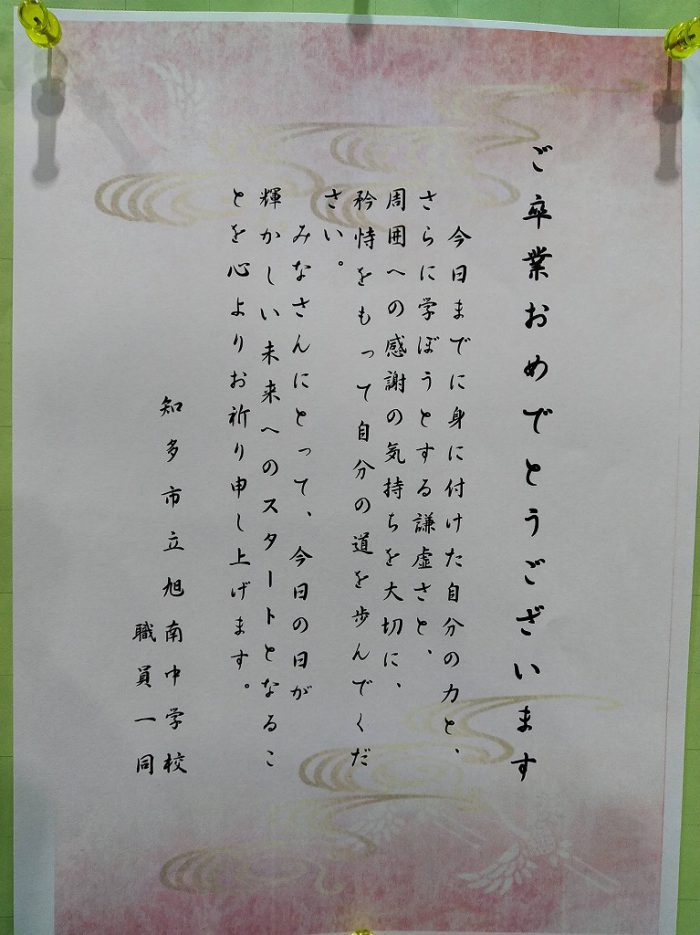 ご卒業おめでとうございます
今日までに身に付けた自分の力と、
さらに学ぼうとする謙虚さと、
周囲への感謝の気持ちを大切に、
矜恃をもって自分の道を歩んでくだ
さい。
みなさんにとって、今日の日が
輝かしい未来へのスタートとなるこ
とを心よりお祈り申し上げます。
知多市立旭南中学校
職員一同